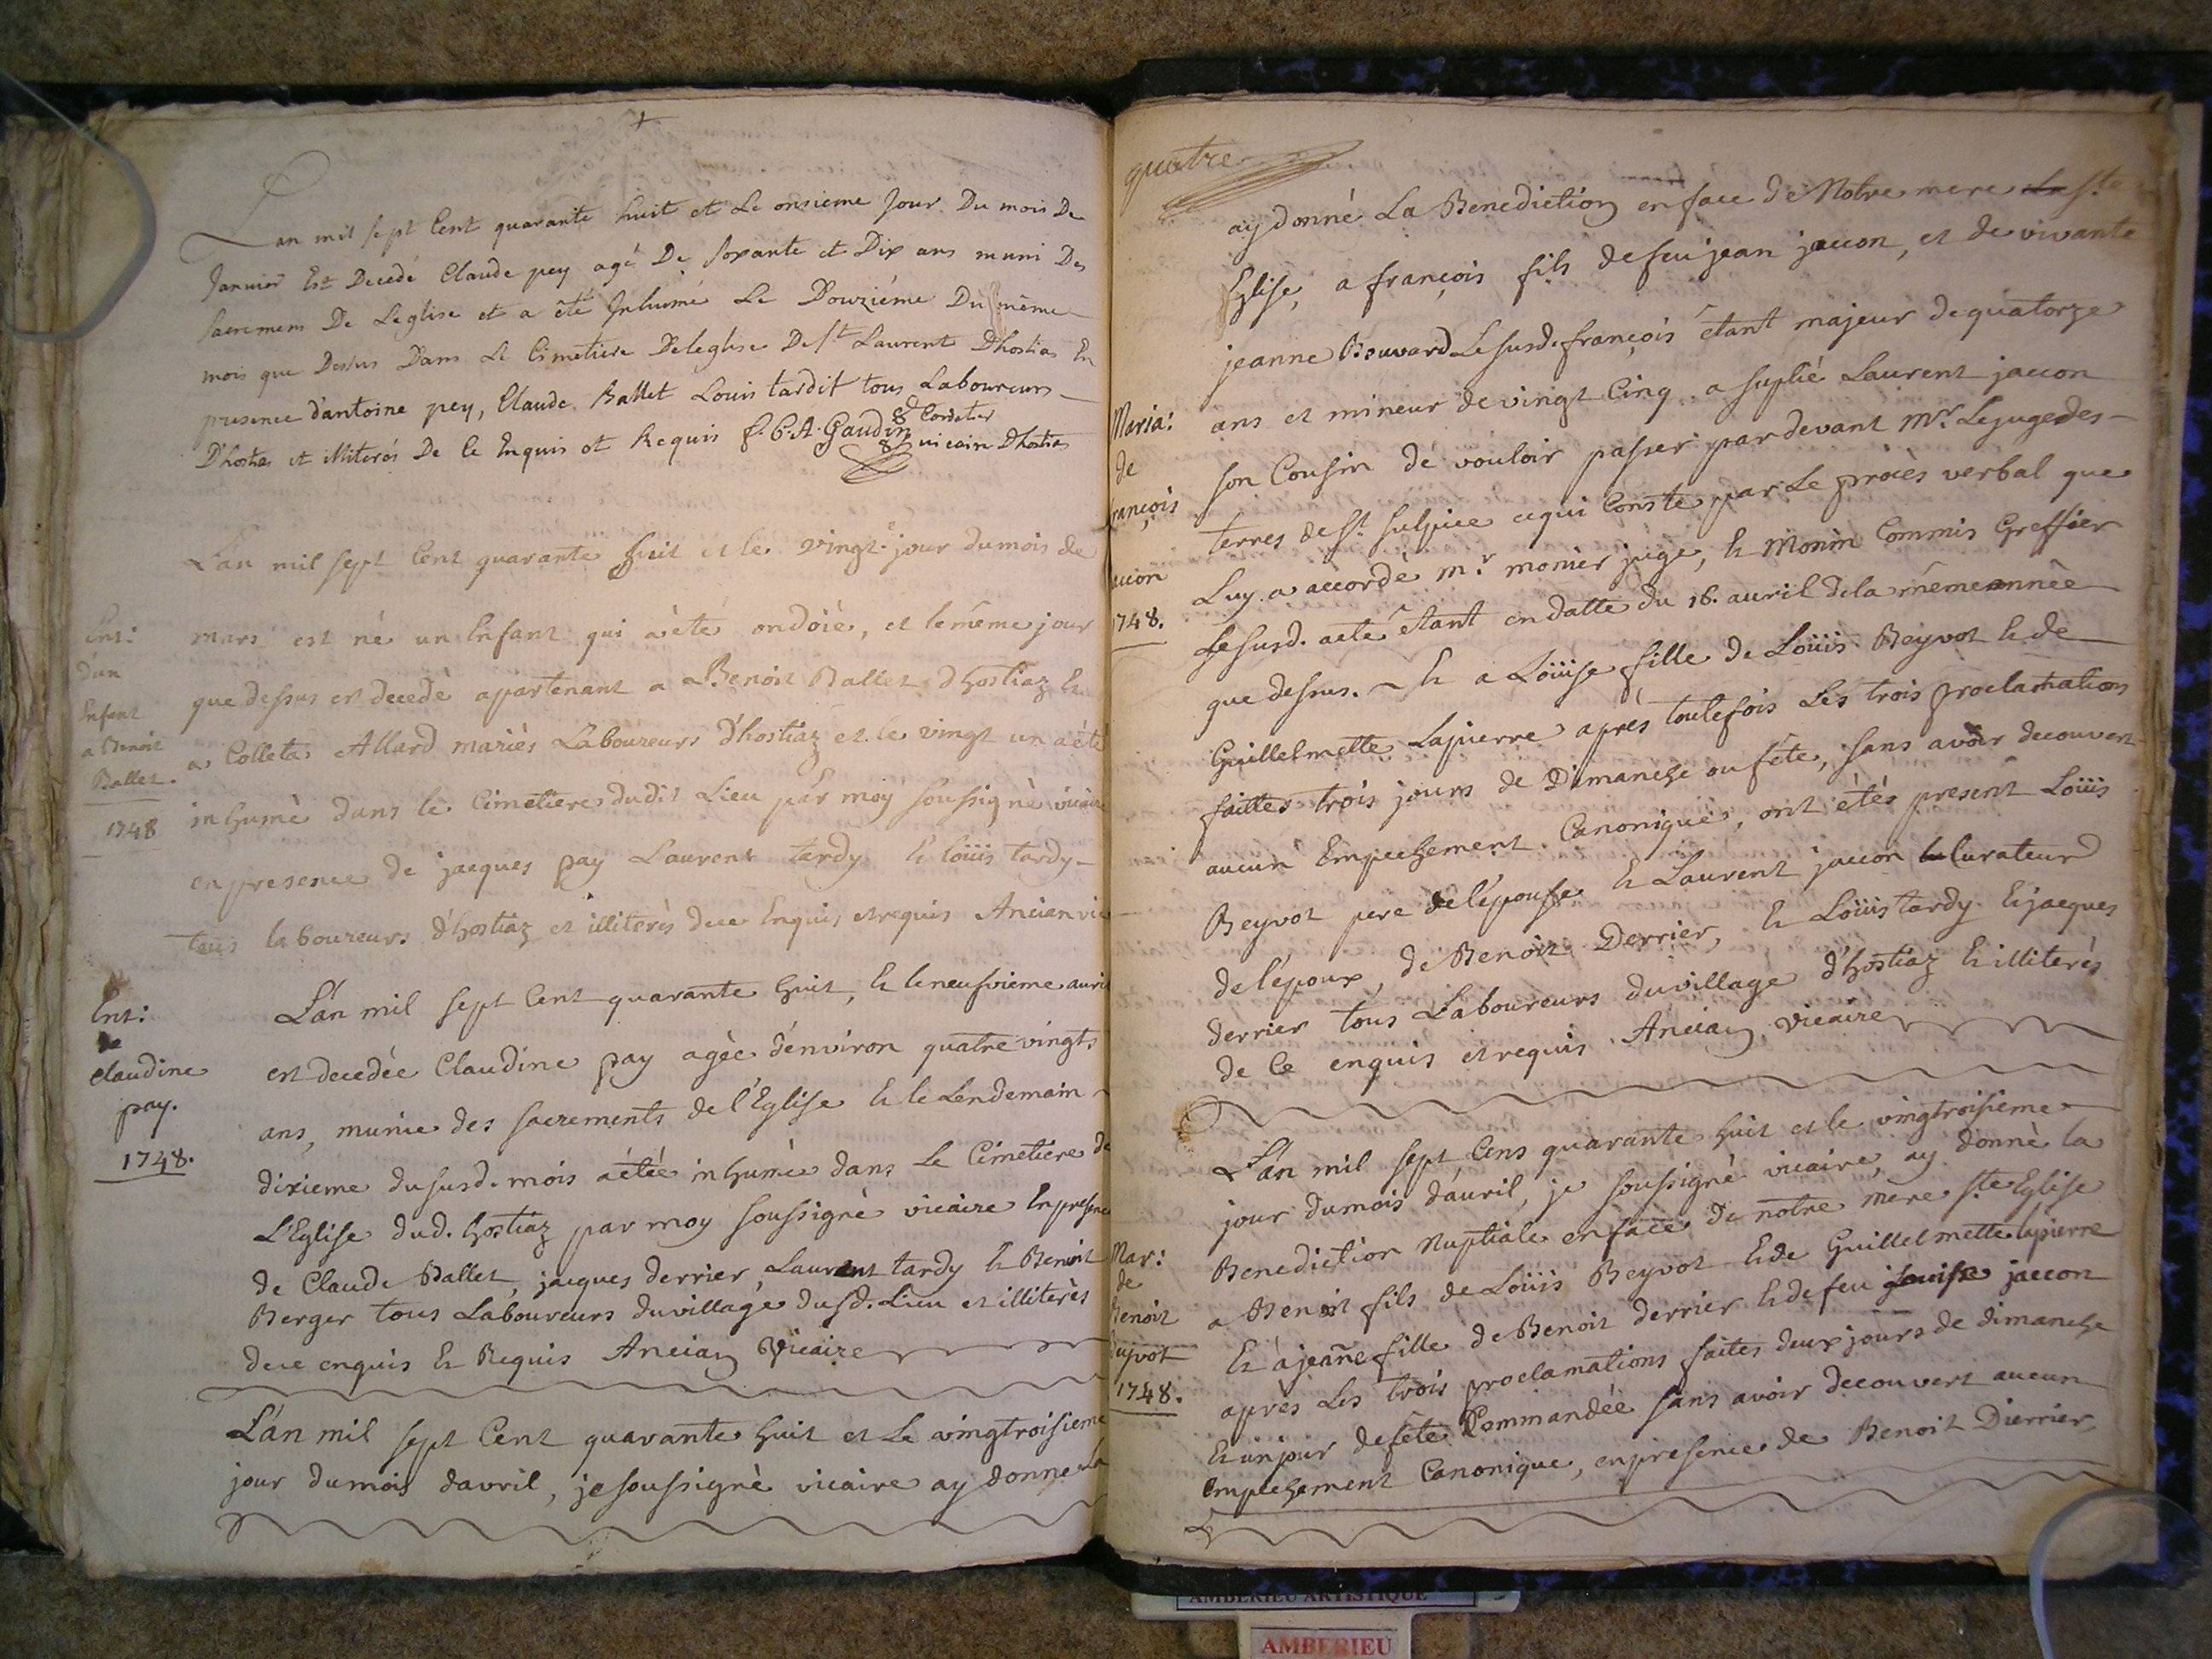 Lan mil sept Cent quarante huit et Le onsieme Jour Du mois De
Janvier Est Decedé Claude pey agé De soxante et Dix ans muni Des
sacremens De Leglise et a été Inhumé Le Douziéme Du même
mois que Dessus Dans Le Cimetiere Deleglise De St Laurent Dhostias En
presence d'antoine pey, Claude Ballet Louis tardit tous Laboureurs
Dhostias et illiterés De Ce Enquis et Requis f. C. A. Gaudin Cordelier
vicaire Dhostias
L'an mil sept Cent quarante huit et le vingt.e jour du mois de
Ent:
d'un
Enfant
a Benoit
Ballet.
1748
mars est né un Enfant qui a été ondoié, et le méme jour
que dessus est decedé apartenant a Benoit Ballet d'hostiaz Et
a Colleta Allard mariés Laboureurs d'hostiaz et le vingt un a été
inhumé dans le Cimetiere dudit Lieu par moy soussigné vicaire
en presence de jacques pay Laurent tardy Et loüis tardy
tous laboureurs d'hostiaz et illiterés de ce Enquis et requis Ancian vic
Ent:
de
Claudine
pay.
1748.
L'an mil sept Cent quarante huit, Et le neufvieme avril
est decedée Claudine pay agée d'environ quatre vingts
ans, munie des sacrements de l'Eglise Et le Lendemain
dixieme du susd. mois a étée inhumée dans Le Cimetiere de
L'Eglise dud. hostiaz par moy soussigné vicaire En presence
de Claude Ballet, jacques derrier, Laurent tardy Et Benoit
Berger tous Laboureurs du village dusd. Lieu et illiterés
de ce enquis Et Requis Ancian Vicaire
L'an mil sept Cent quarante huit et Le vingtroisieme
jour du mois d'avril, je soussigné vicaire ay donné La
quatre
ay donné La Benediction en face de Notre mere La Ste
Eglise, a françois fils de feu jean jaccon, et de vivante
jeanne Bouvard Le susd. françois étant majeur de quatorze
Maria:
de
françois
jaccon
1748.
ans et mineur de vingt Cinq a suplié Laurent jaccon
son Cousin de vouloir passer par devant Mr. Le juge des
terres de St. sulpice ce qui Conste par Le procès verbal que
Luy a accordé Mr. monier juge, Et Monin Commis Greffier
Le susd. acte étant en datte du 16. avril de la même année
que dessus. Et a Loüise fille de Loüis Beyvot Et de
Guillelmette Lapierre après toutefois Les trois proclamations
faittes trois jours de Dimanche ou fête, sans avoir decouvert
aucun Empechement Canoniques, ont étés present Loüis
Beyvot pere de l'épouse Et Laurent jaccon Curateur
de l'époux, de Benoit Derrier, Et Loüis tardy Et jacques
derrier tous Laboureurs du village d'hostiaz Et illiterés
de Ce enquis et requis Ancian vicaire
L'an mil sept Cens quarante huit et le vingtroisieme
jour du mois d'avril, je soussigné vicaire, ay donné la
Benediction Nuptiale en face de notre mere ste Eglise
Mar:
de
Benoit
Beyvot
1748.
a Benoit fils de Loüis Beyvot Et de Guillelmette lapierre
Et a jeanne fille de Benoit derrier Et de feu Louise jaccon
après Les trois proclamations faites deux jours de dimanche
Et un jour de fête Commandée sans avoir decouvert aucun
Empechement Canonique, en presence de Benoit Dierrier,
AMBERIEU ARTISTIQUE
AMBERIEU